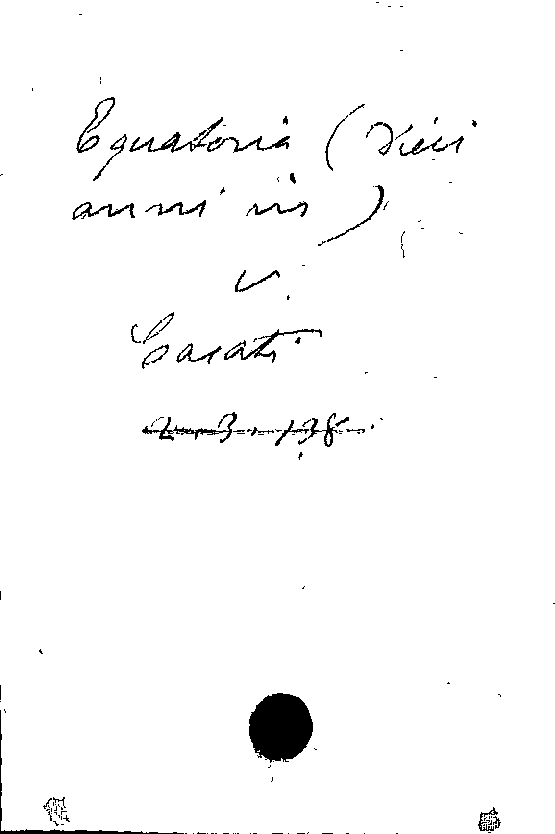 Equatoria (Dieci
anni in)
v.
Casati
2. 3. 138.